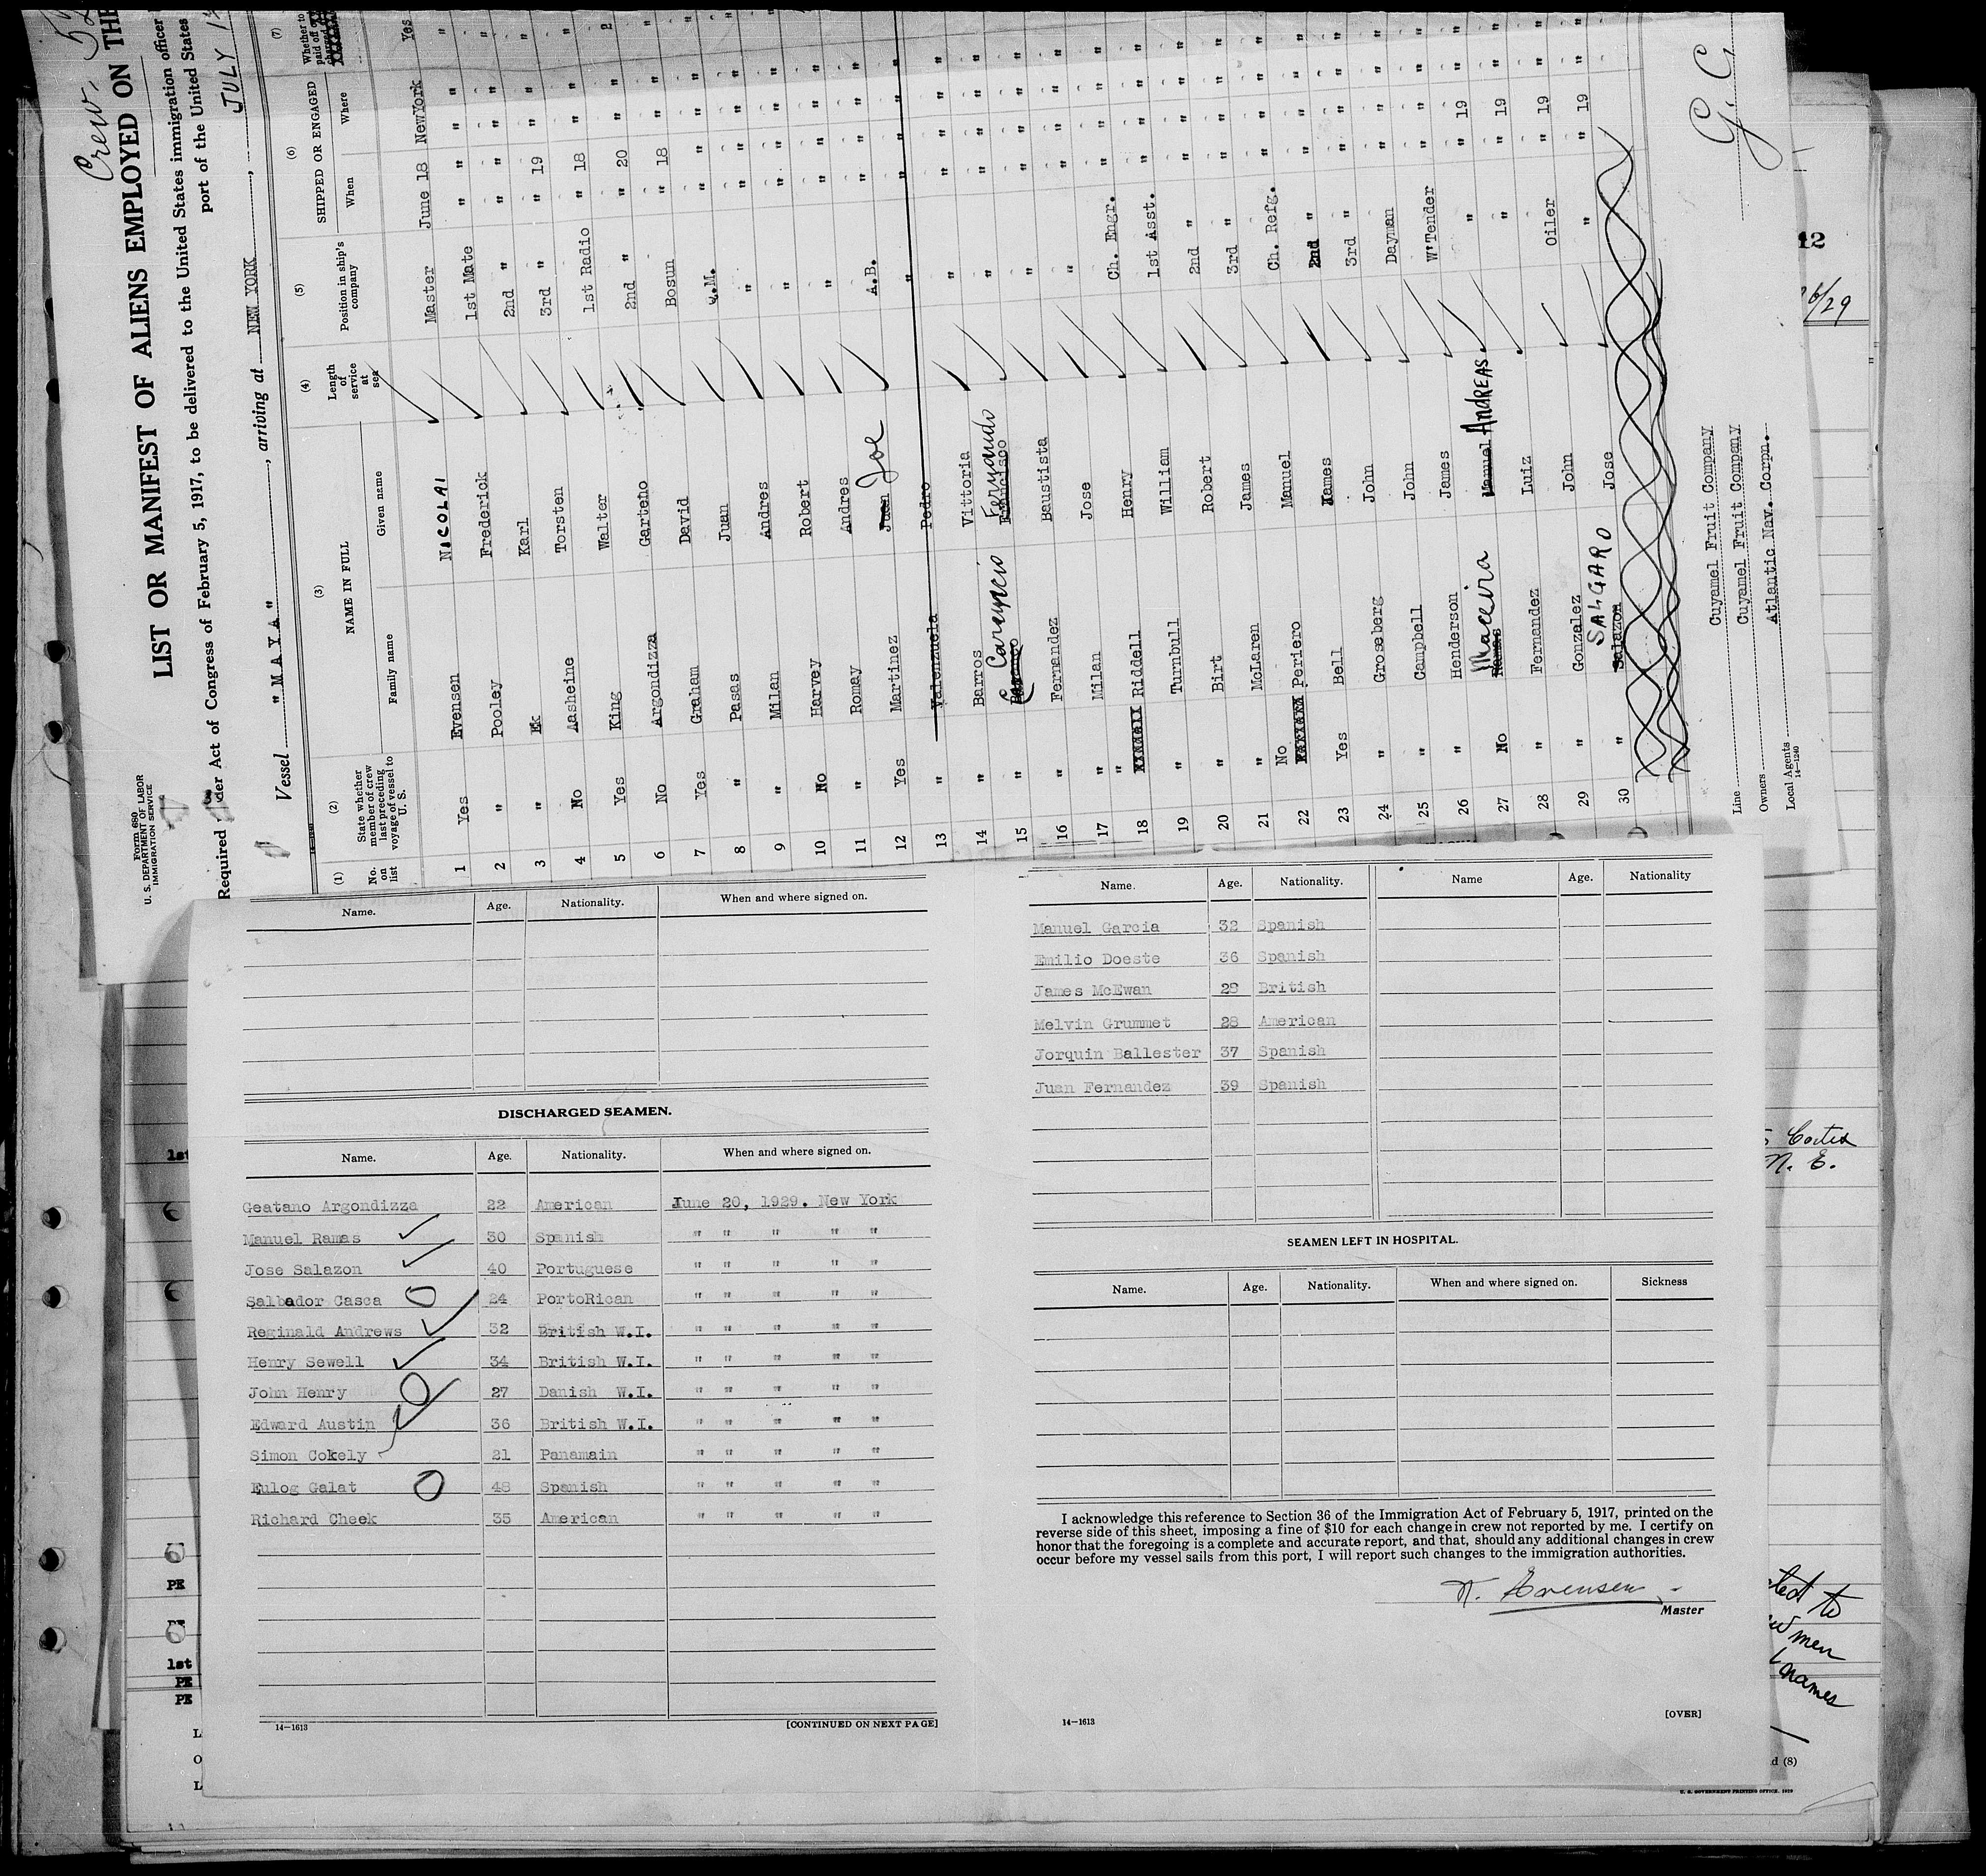 Crew. 52
Form 680
U. S. DEPARTMENT OF LABOR
IMMIGRATION SERVICE
LIST OR MANIFEST OF ALIENS EMPLOYED ON THE
Required der Act of Congress of February 5, 1917, to be delivered to the United States immigration officer
port of the United States
Vessel "MAYA", arriving at NEW YORK, JULY 1
(1) (2) (3) (4) (5) (6) (7)
No. on list
State whether member of crew last preceding voyage of vessel to U. S.
NAME IN FULL
Family name Given name
Length of service at sea
Position in ship's company
SHIPPED OR ENGAGED
When Where
Whether to paid off
1 Yes Evensen NICOLAI Master June 18 NewYork Yes
2 " Pooley Frederick 1st Mate " " " "
3 " Ek Karl 2nd " " " " " "
4 No Aasheine Torsten 3rd " " 19 " " "
5 Yes King Walter 1st Radio " 18 " " "
6 No Argondizza Garteno 2nd " " 20 " " 2
7 Yes Graham David Bosun " 18 " " "
8 " Pasas Juan Q.M. " " " " "
9 " Milan Andres " " " " " "
10 No Harvey Robert " " " " " "
11 " Romay Andres " " " " " "
12 Yes Martinez Juan Joe A.B. " " " " "
13 " Valenzuela Pedro " " " " " "
14 " Barros Vittoria " " " " " "
15 " Carempcio Francisco Fernando " " " " " "
16 " Fernandez Baustista " " " " " "
17 " Milan Jose " " " " " "
18 " Riddell Henry Ch. Engr. " " " " "
19 " Turnbull William 1st Asst. " " " " "
20 " Birt Robert 2nd " " " " " "
21 " McLaren James 3rd " " " " " "
22 No Periero Manuel Ch. Refg. " " " " "
23 Yes Bell James 2nd " " " " " "
24 " Groseberg John 3rd " " " " " "
25 " Campbell John Dayman " " " " "
26 " Henderson James W'Tender " " " " "
27 No Ramas Maceira Manuel ANDREAS " " 19 " " "
28 " Fernandez Luiz " " 19 " " "
29 " Gonzalez John Oiler " 19 " " "
30 " Salazon SALGARO Jose " " 19 " " "
Line Cuyamel Fruit Company
Owners Cuyamel Fruit Company
Local Agents Atlantic Nav. Corpn.
14-1240
G. C.
12
6/29
Name. Age. Nationality. When and where signed on.
DISCHARGED SEAMEN.
Name. Age. Nationality. When and where signed on.
Geatano Argondizza 22 American June 20, 1929. New York
Manuel Ramas 30 Spanish " " " " "
Jose Salazon 40 Portuguese " " " " "
Salbador Casca 24 PortoRican " " " " "
Reginald Andrews 32 British W.I. " " " " "
Henry Sewell 34 British W.I. " " " " "
John Henry 27 Danish W.I. " " " " "
Edward Austin 36 British W.I. " " " " "
Simon Cokely 21 Panamain " " " " "
Eulog Galat 48 Spanish " " " " "
Richard Cheek 35 American " " " " "
14—1613 [CONTINUED ON NEXT PAGE]
Name. Age. Nationality. Name Age. Nationality
Manuel Garcia 32 Spanish
Emilio Doeste 36 Spanish
James McEwan 28 British
Melvin Grummet 28 American
Jorquin Ballester 37 Spanish
Juan Fernandez 39 Spanish
SEAMEN LEFT IN HOSPITAL.
Name. Age. Nationality. When and where signed on. Sickness
I acknowledge this reference to Section 36 of the Immigration Act of February 5, 1917, printed on the
reverse side of this sheet, imposing a fine of $10 for each change in crew not reported by me. I certify on
honor that the foregoing is a complete and accurate report, and that, should any additional changes in crew
occur before my vessel sails from this port, I will report such changes to the immigration authorities.
N. Evensen
Master
14—1613 [OVER]
1st
PE
1st
PE
PE
Cortes
N. E.
ted to
men
names
d (8)
U. S. GOVERNMENT PRINTING OFFICE. 1929